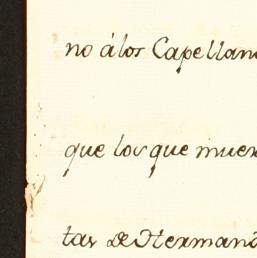 no álos Capellan
que los que muer
tas de Herman